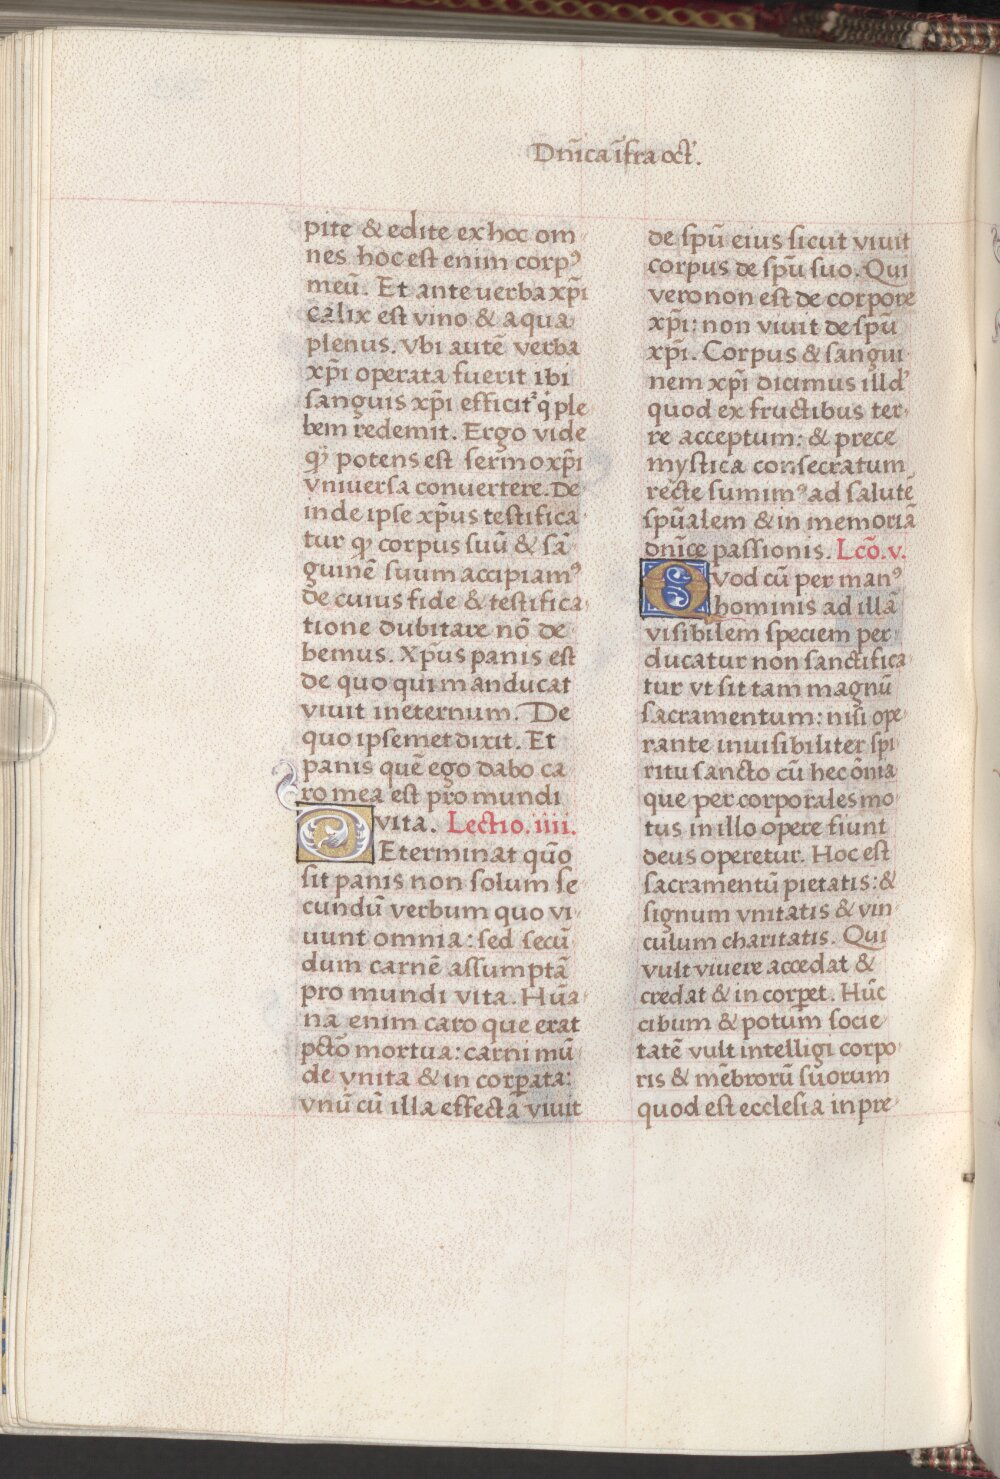 Dnīca īfra oct̄.
pite & edite ex hoc om
nes hoc est enim corpꝰ
meū. Et ante uerba xp̄i
calix est vino & aqua
plenus. Vbi autē verba
xp̄i operata fuerit ibi
sanguis xp̄i efficit᷑ q̇ ple
bem redemit. Ergo vide
ꝙ potens est sermo xp̄i
vniuersa conuertere. De
inde ipse xp̄us testifica
tur ꝙ corpus suū & sā
guinē suum accipiamꝰ
de cuius fide & testifica
tione dubitare nō de
bemus. Xpus panis est
de quo qui manducat
viuit in eternum. De
quo ipsemet dixit. Et
panis quē ego dabo ca
ro mea est pro mundi
vita. Lectio. iiii.
DEterminat quō
sit panis non solum se
cundū verbum quo vi
uunt omnia: sed secū
dum carnē assumptā
pro mundi vita. Hūa
na enim caro que erat
pctō mortua: carni mū
de vnita & in corꝑata:
vnū cū illa effecta viuit
de spū eius sicut viuit
corpus de spū suo. Qui
vero non est de corpore
xp̄i: non viuit de spū
xp̄i. Corpus & sangui
nem xp̄i dicimus illd'
quod ex fructibus ter
re acceptum: & prece
mystica consecratum
recte sumimꝰ ad salutē
spūalem & in memoriā
dnīce passionis. Lcō. v.
QVod cū per manꝰ
hominis ad illā
visibilem speciem per
ducatur non sanctifica
tur vt sit tam magnū
sacramentum: nisi ope
rante inuisibiliter spi
ritu sancto cū hec ōnia
que per corporales mo
tus in illo opere fiunt
deus operetur. Hoc est
sacramentū pietatis: &
signum vnitatis & vin
culum charitatis. Qui
vult viuere accedat &
credat & in corꝑet. Hūc
cibum & potum socie
tatē vult intelligi corpo
ris & mēbrorū suorum
quod est ecclesia in pre